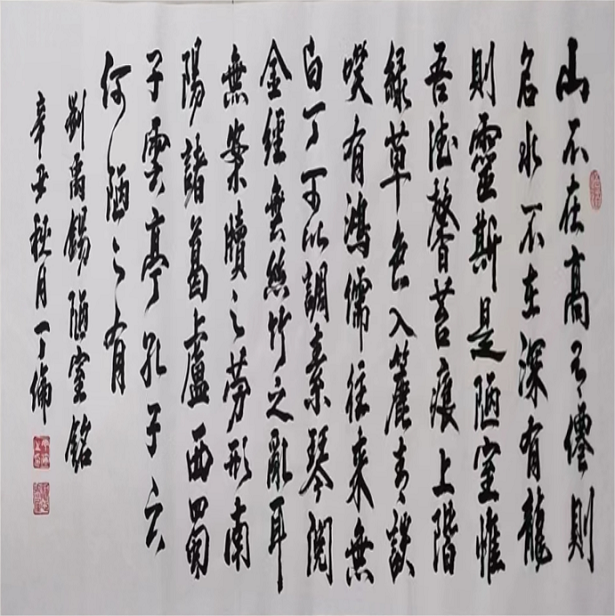 山不在高有僊則
名水不在深有龍
則靈斯是陋室惟
吾德馨苔痕上階
綠草色入簾青談
笑有鴻儒往來無
白丁可以調素琴閱
金經無絲竹之亂耳
無案牘之勞形南
陽諸葛廬西蜀
子雲亭孔子云
何陋之有
劉禹錫陋室銘
辛丑秋月丁倫